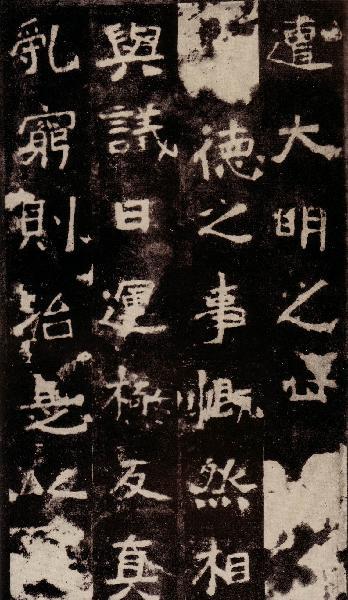 遭大明之世
德之事慨然相
與議曰運極反真
乱窮則治是以